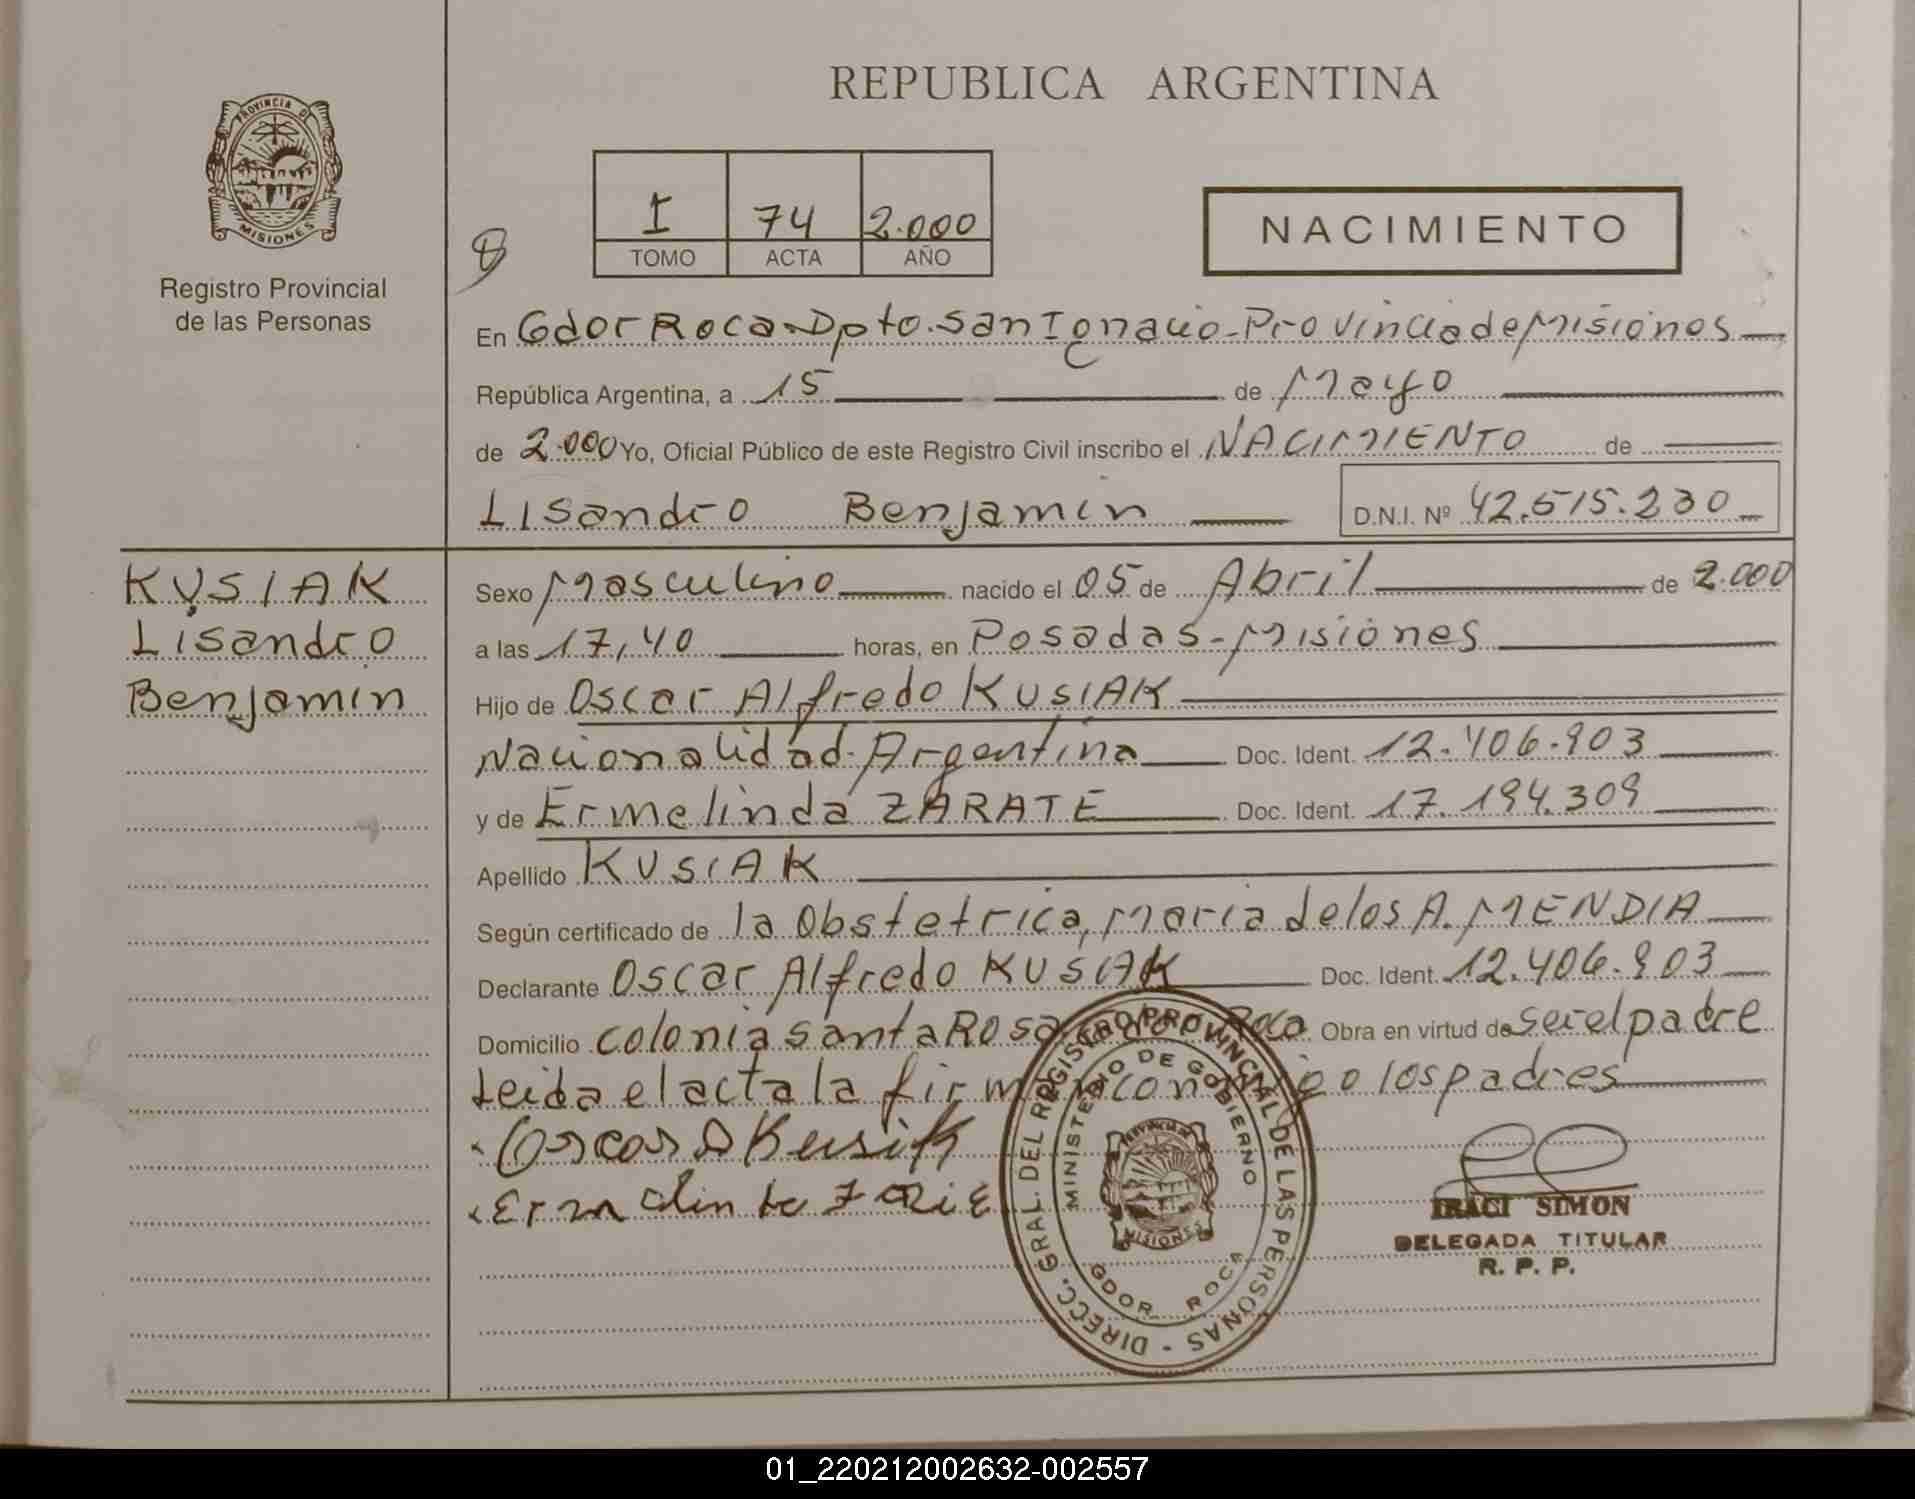 REPUBLICA ARGENTINA
PROVINCIA DE
MISIONES
Registro Provincial
de las Personas
I 74 2.000
TOMO ACTA AÑO
NACIMIENTO
En Gdor Roca-Dpto. San Ignacio-Provincia de Misiones
República Argentina, a 15 de Mayo
de 2.000 Yo, Oficial Público de este Registro Civil inscribo el NACIMIENTO de
Lisandro Benjamin D.N.I. Nº 42.515.230
KUSIAK
Lisandro
Benjamin
Sexo Masculino nacido el 05 de Abril de 2.000
a las 17,40 horas, en Posadas-Misiones
Hijo de Oscar Alfredo KUSIAK
Nacionalidad Argentina Doc. Ident. 12.406.903
y de Ermelinda ZARATE Doc. Ident. 17.194.309
Apellido KUSIAK
Según certificado de la Obstetrica, Maria de los A. MENDIA
Declarante Oscar Alfredo KUSIAK Doc. Ident. 12.406.903
Domicilio colonia santa Rosa Roca Obra en virtud de ser el padre
Leida el acta la firman conmigo los padres
Oscar A Kusiak
DIRECC. GRAL. DEL REGISTRO PROVINCIAL DE LAS PERSONAS
MINISTERIO DE GOBIERNO
PROVINCIA DE
MISIONES
GDOR. ROCA
IRACI SIMON
DELEGADA TITULAR
R. P. P.
01_220212002632-002557